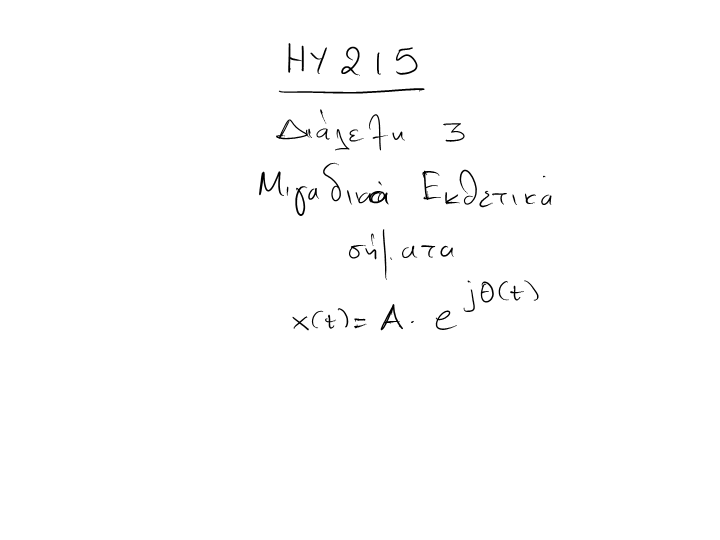 ΗΥ215
Διάλεξη 3
Μιγαδικά Εκθετικά
σήματα
x(t) = A · e^{jθ(t)}